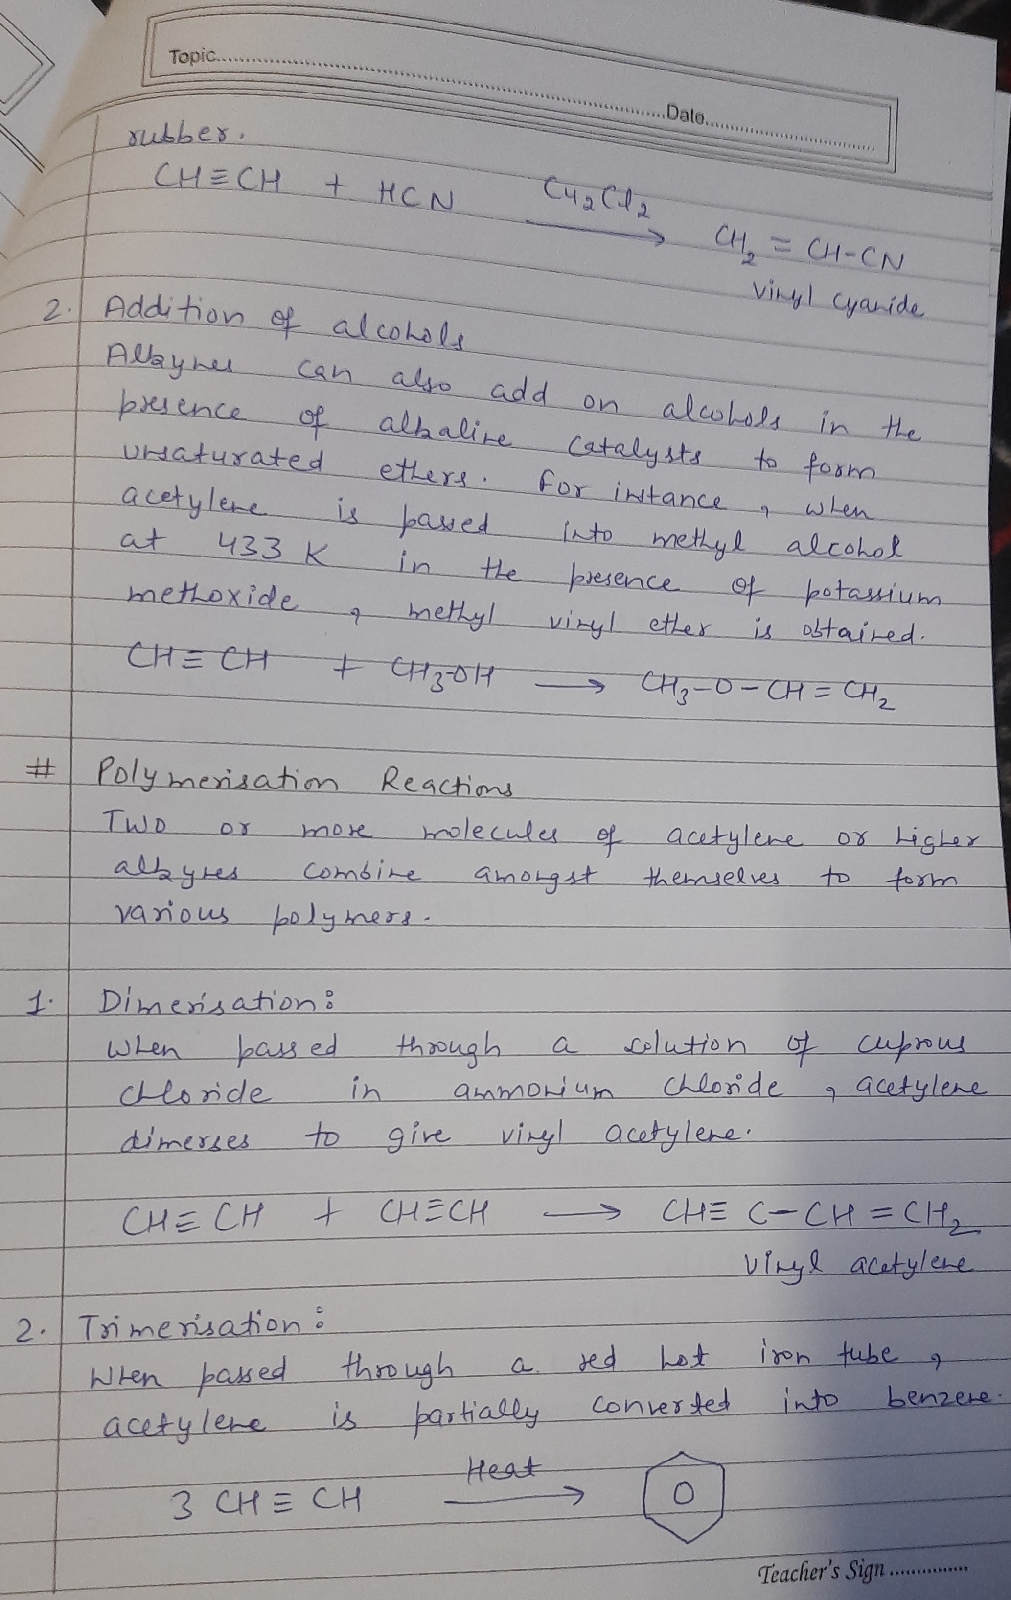 Topic..............................Date..............................
rubber.
CH≡CH + HCN Cu₂Cl₂→ CH₂ = CH-CN
vinyl cyanide
2. Addition of alcohols
Alkynes can also add on alcohols in the
presence of alkaline catalysts to form
unsaturated ethers. For instance, when
acetylene is passed into methyl alcohol
at 433 K in the presence of potassium
methoxide, methyl vinyl ether is obtained.
CH≡CH + CH₃OH → CH₃-O-CH=CH₂
# Polymerisation Reactions
Two or more molecules of acetylene or higher
alkynes combine amongst themselves to form
various polymers.
1. Dimerisation:
When passed through a solution of cuprous
chloride in ammonium chloride, acetylene
dimerses to give vinyl acetylene.
CH≡CH + CH≡CH → CH≡C-CH=CH₂
vinyl acetylene
2. Trimerisation:
When passed through a red hot iron tube,
acetylene is partially converted into benzene.
3 CH≡CH Heat→
Teacher's Sign...............